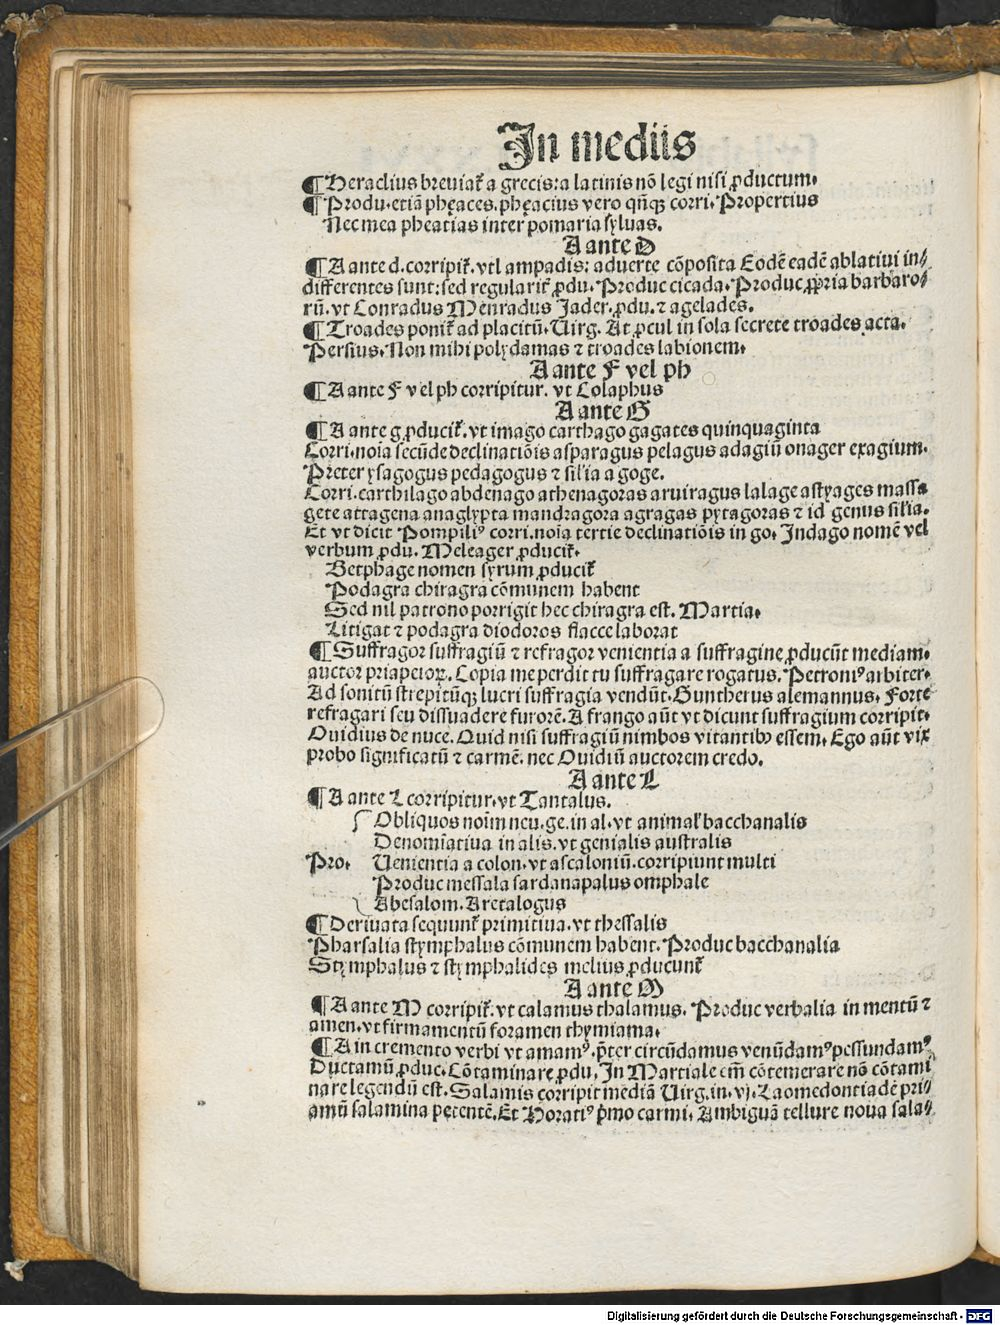 In mediis
¶ Heraclius breuiat᷑ a grecis: a latinis nō legi nisi ꝓductum.
¶ Produ. etiā phęaces. phęacius vero qn̄qꝫ corri. Propertius
Nec mea pheacias inter pomaria syluas.
A ante D
¶ A ante d. corripit᷑. vt lampadis: aduerte cōposita Eodē eadē ablatiui in/
differentes sunt: sed regularit᷑ ꝓdu. Produc cicada. Produc ꝓpria barbaro/
rū. vt Conradus Menradus Jader. ꝓdu. ⁊ agelades.
¶ Troades ponit᷑ ad placitū. Uirg. At ꝓcul in sola secrete troades acta.
Persius. Non mihi polydamas ⁊ troades labionem.
A ante F vel ph
¶ A ante F vel ph corripitur. vt Colaphus
A ante G
¶ A ante g ꝓducit᷑. vt imago carthago gagates quinquaginta
Corri. noīa secūde declinatiōis asparagus pelagus adagiū onager exagium.
Preter ysagogus pedagogus ⁊ sil'ia a goge.
Corri. carthilago abdenago athenagoras aruiragus lalage astyages massa
gete attagena anaglypta mandragora agragas pytagoras ⁊ id genus sil'ia.
Et vt dicit Pompiliꝰ corri. noīa tertie declinatiōis in go. Indago nomē vel
verbum ꝓdu. Meleager ꝓducit᷑.
Betphage nomen syrum ꝓducit᷑
Podagra chiragra cōmunem habent
Sed nil patrono porrigit hec chiragra est. Martia.
Litigat ⁊ podagra diodoros flacce laborat
¶ Suffragor suffragiū ⁊ refragor venientia a suffragine ꝓducūt mediam.
auctor priapeioꝝ. Copia me perdit tu suffragare rogatus. Petroniꝰ arbiter.
Ad sonitū strepitūqꝫ lucri suffragia vendūt. Guntherus alemannus. Forte
refragari seu dissuadere furorē. A frango aūt vt dicunt suffragium corripit.
Ouidius de nuce. Quid nisi suffragiū nimbos vitantibꝫ essem. Ego aūt vix
probo significatū ⁊ carmē. nec Ouidiū auctorem credo.
A ante L
¶ A ante L corripitur. vt Tantalus.
Obliquos noīm neu. ge. in al. vt animal' bacchanalis
Denomīatiua in alis. vt genialis australis
Pro. Uenientia a colon. vt ascaloniū. corripiunt multi
Produc messala sardanapalus omphale
Abesalom. Aretalogus
¶ Deriuata sequunt᷑ primitiua. vt thessalis
Pharsalia stymphalus cōmunem habent. Produc bacchanalia
Stymphalus ⁊ stymphalides melius ꝓducunt᷑
A ante M
¶ A ante M corripit᷑. vt calamus thalamus. Produc verbalia in mentū ⁊
amen. vt firmamentū foramen thymiama.
¶ A in cremento verbi vt amamꝰ. p̄ter circūdamus venūdamꝰ pessundamꝰ
Ductamū ꝓduc. Cōtaminare ꝓdu. In Martiale em̄ cōtemerare nō cōtami
nare legendū est. Salamis corripit mediā Uirg. in. vj. Laomedontiadē pri/
amū salamina petentē. Et Horatiꝰ p̄mo carmi. Ambiguā tellure noua sala/
Digitalisierung gefördert durch die Deutsche Forschungsgemeinschaft - DFG